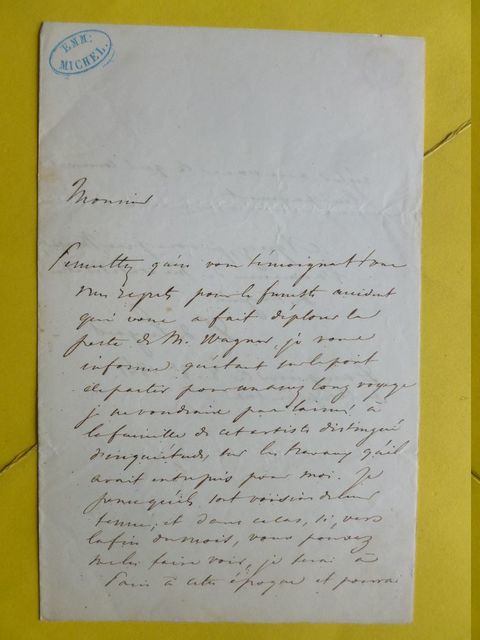 EMM:
MICHEL.
Monsieur
Permettez qu'en vous témoignant tous
mes regrets pour le funeste accident
qui vous a fait déplorer la
perte de M. Wagner je vous
informe qu'étant sur le point
de partir pour un assez long voyage
je ne voudrais pas laisser à
la famille de cet artiste distingué
d'inquiétude sur les travaux qu'il
avait entrepris pour moi. Je
pense qu'ils sont voisins de leur
terme, et dans ce cas, si, vers
la fin du mois, vous pouvez
me les faire voir, je serai à
Paris à cette époque et pourrai